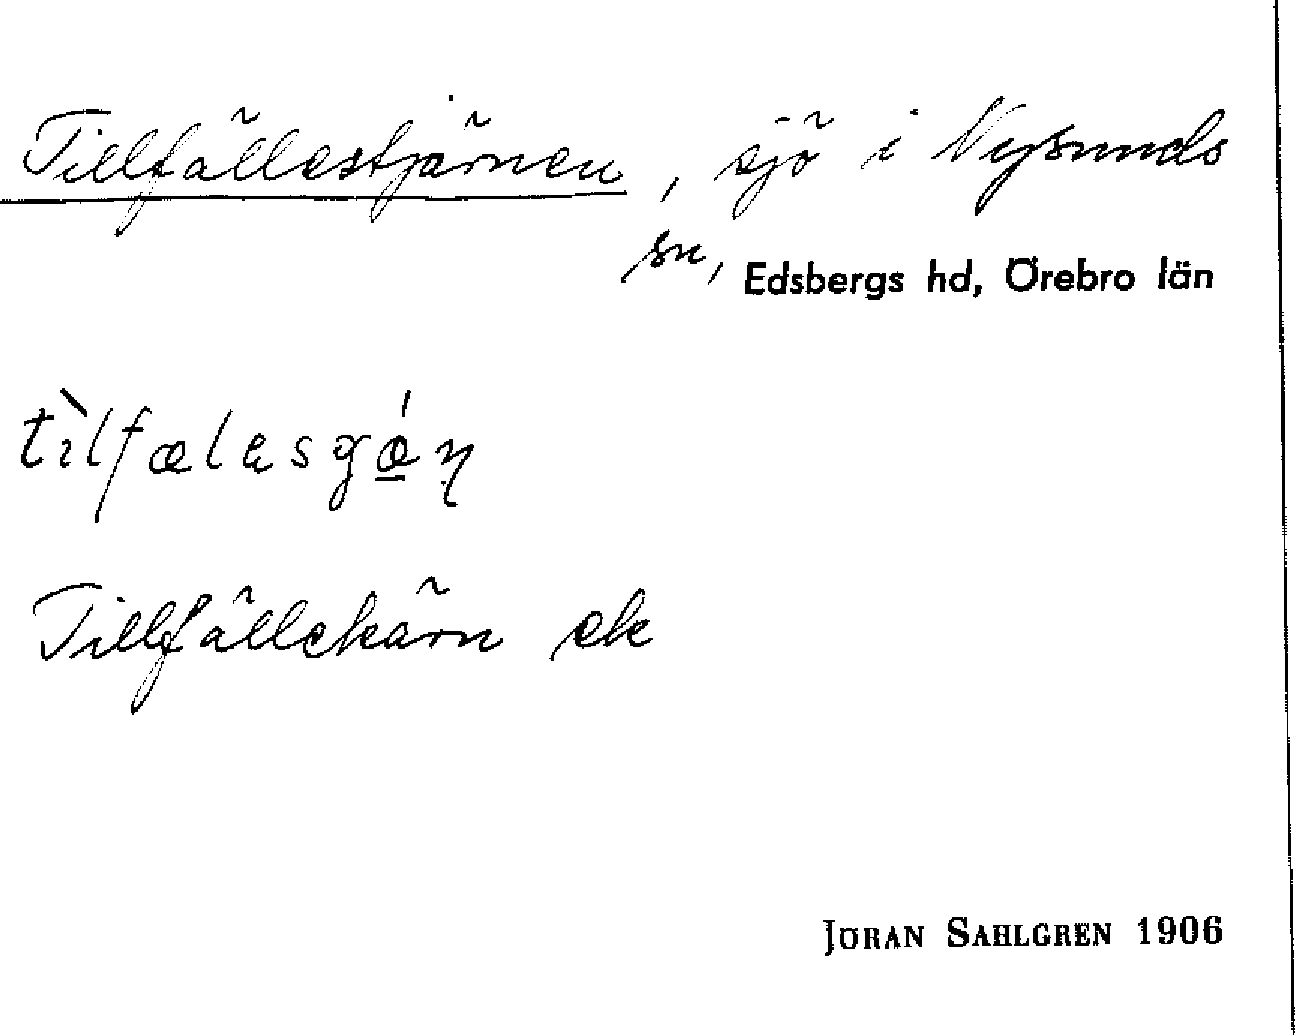 Tillfällestjärnen, sjö i Nysunds
sn, Edsbergs hd, Örebro län
tìlfælesgǽ̱ṇ
Tillfällekärn ek
JÖRAN SAHLGREN 1906